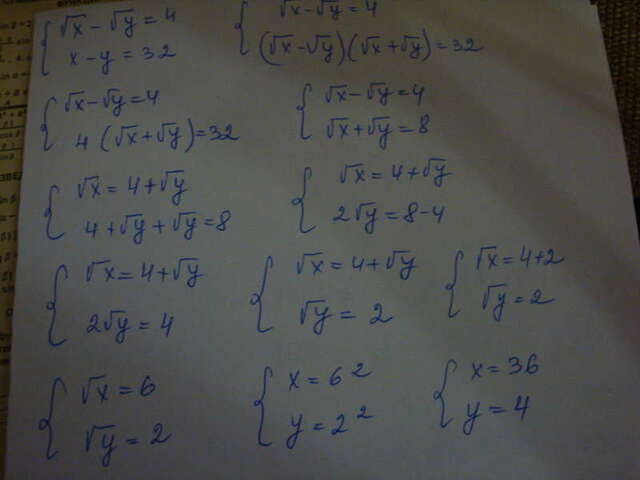 √x - √y = 4
x - y = 32
√x - √y = 4
(√x - √y)(√x + √y) = 32
√x - √y = 4
4 (√x + √y) = 32
√x - √y = 4
√x + √y = 8
√x = 4 + √y
4 + √y + √y = 8
√x = 4 + √y
2√y = 8 - 4
√x = 4 + √y
2√y = 4
√x = 4 + √y
√y = 2
√x = 4 + 2
√y = 2
√x = 6
√y = 2
x = 6²
y = 2²
x = 36
y = 4